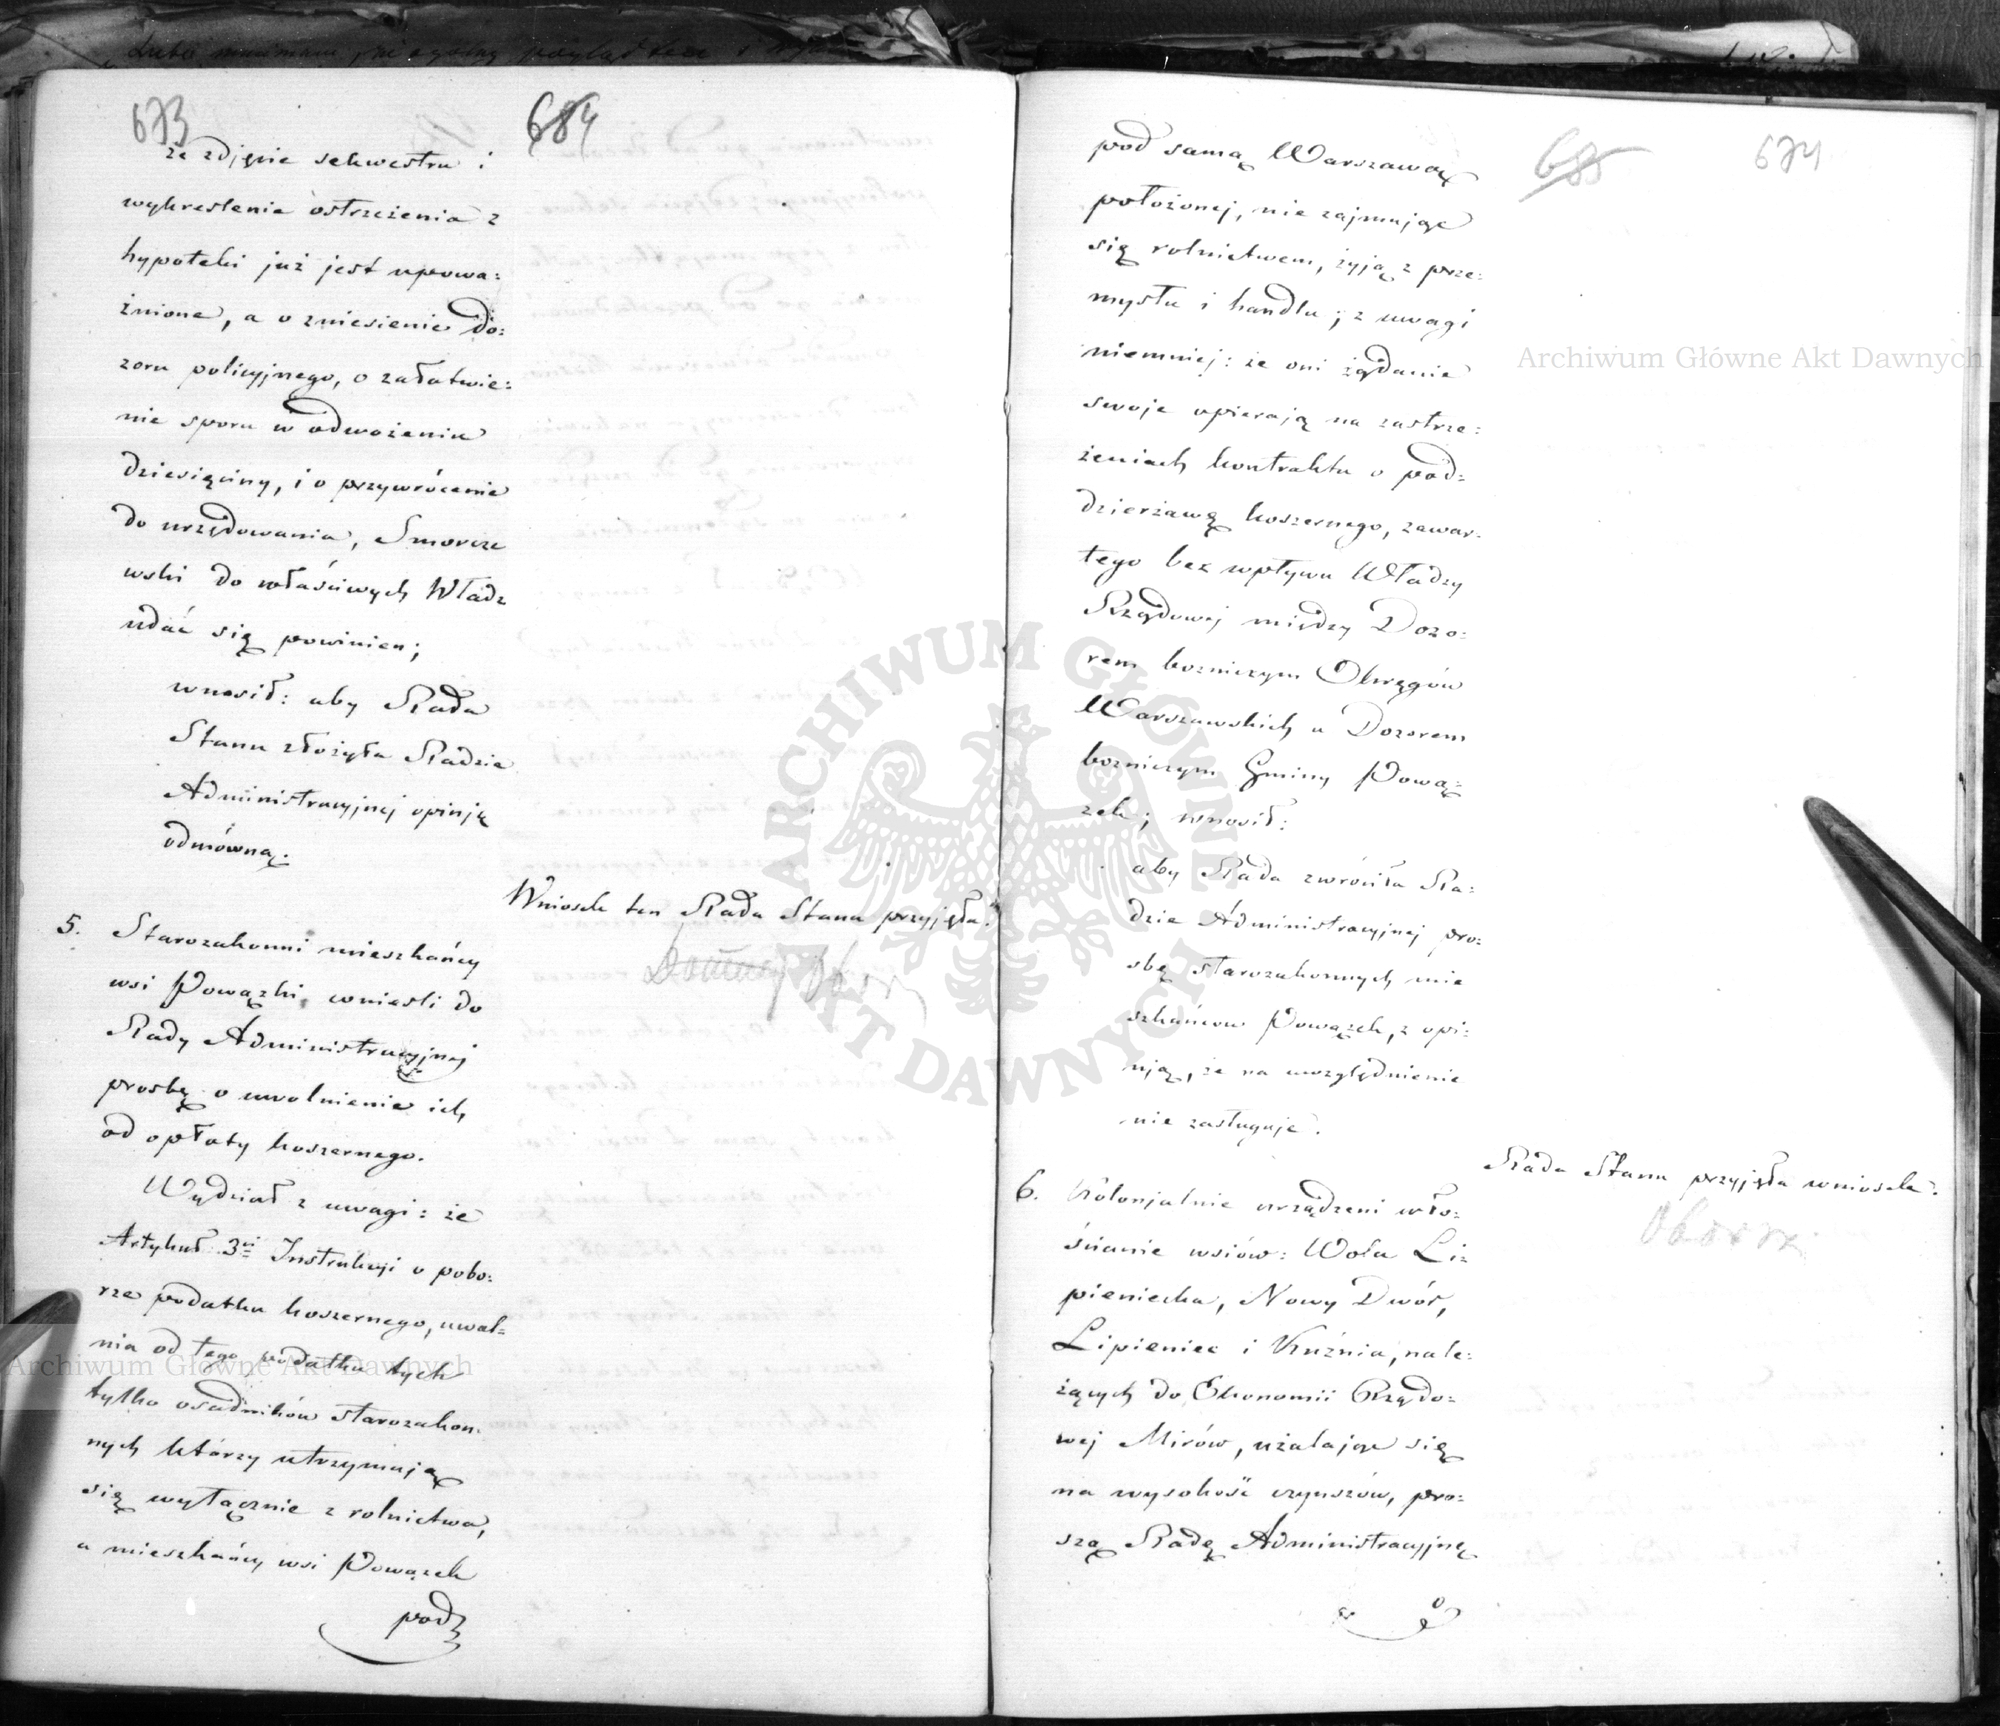 673
684
że zdjęcie sekwestru i
wykreślenie ostrzeżenia z
hypoteki już jest upowa=
żnione, a o zniesienie do=
zoru policyjnego, o załatwie=
nie sporu w odwożeniu
dziesięciny, i o przywrócenie
do urzędowania, Smorcze
wski do właściwych Władz
udać się powinien;
wnosił: aby Rada
Stanu złożyła Radzie
Administracyjnej opinją
odmówną.
Wniosek ten Rada Stanu przyjęła.
5. Starozakonni mieszkańcy
wsi Powązki wnieśli do
Rady Administracyjnej
prosbę o uwolnienie ich
od opłaty koszernego.
Wydział z uwagi: że
Artykuł 3ci Instrukcji o pobo=
rze podatku koszernego, uwal=
nia od tego podatku tych
tylko osadników starozakon=
nych którzy utrzymują
się wyłącznie z rolnictwa,
a mieszkańcy wsi Powązek
pod
685
674
pod samą Warszawą
położonej, nie zajmując
się rolnictwem, żyją z prze=
mysłu i handlu; z uwagi
niemniej: że oni żądanie
swoje opierają na zastrze=
żeniach kontraktu o pod=
dzierżawę koszernego, zawar=
tego bez wpływu Władzy
Rządowej między Dozo=
rem bożniczym Okręgów
Warszawskich a Dozorem
bożniczym Gminy Pową=
zek; wnosił:
aby Rada zwróciła Ra=
dzie Administracyjnej pro=
sbę starozakonnych mie
szkańcow Powązek, z opi=
nją, że na uwzględnienie
nie zasługuje.
Rada Stanu przyjęła wniosek.
6. Kolonjalnie urządzeni wło=
ścianie wsiów: Wola Li=
pieniecka, Nowy Dwór,
Lipieniec i Kuźnia, nale=
żących do Ekonomii Rządo=
wej Mirów, użalając się
na wysokość czynszów, pro=
szą Radę Administracyjną
Archiwum Główne Akt Dawnych
Archiwum Główne Akt Dawnych
ARCHIWUM GŁÓWNE AKT DAWNYCH